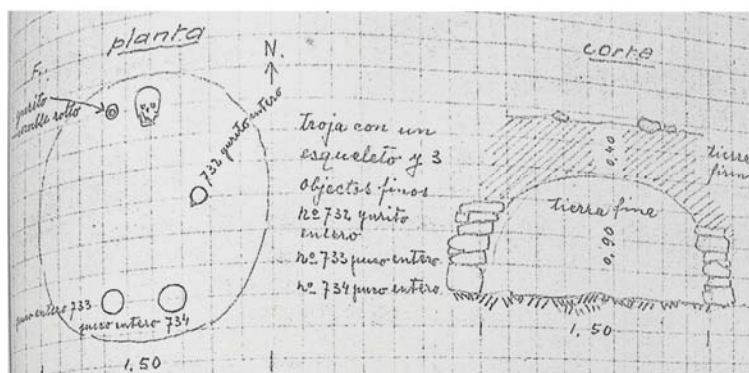 planta
N.
F.
yurito
732 yurito entero
puro entero 733
puro entero 734
1.50
troja con un
esqueleto y 3
objectos finos
nº 732 yurito
entero
nº 733 puro entero
nº 734 puro entero
corte
0,40
tierra
tierra fina
0,90
1.50